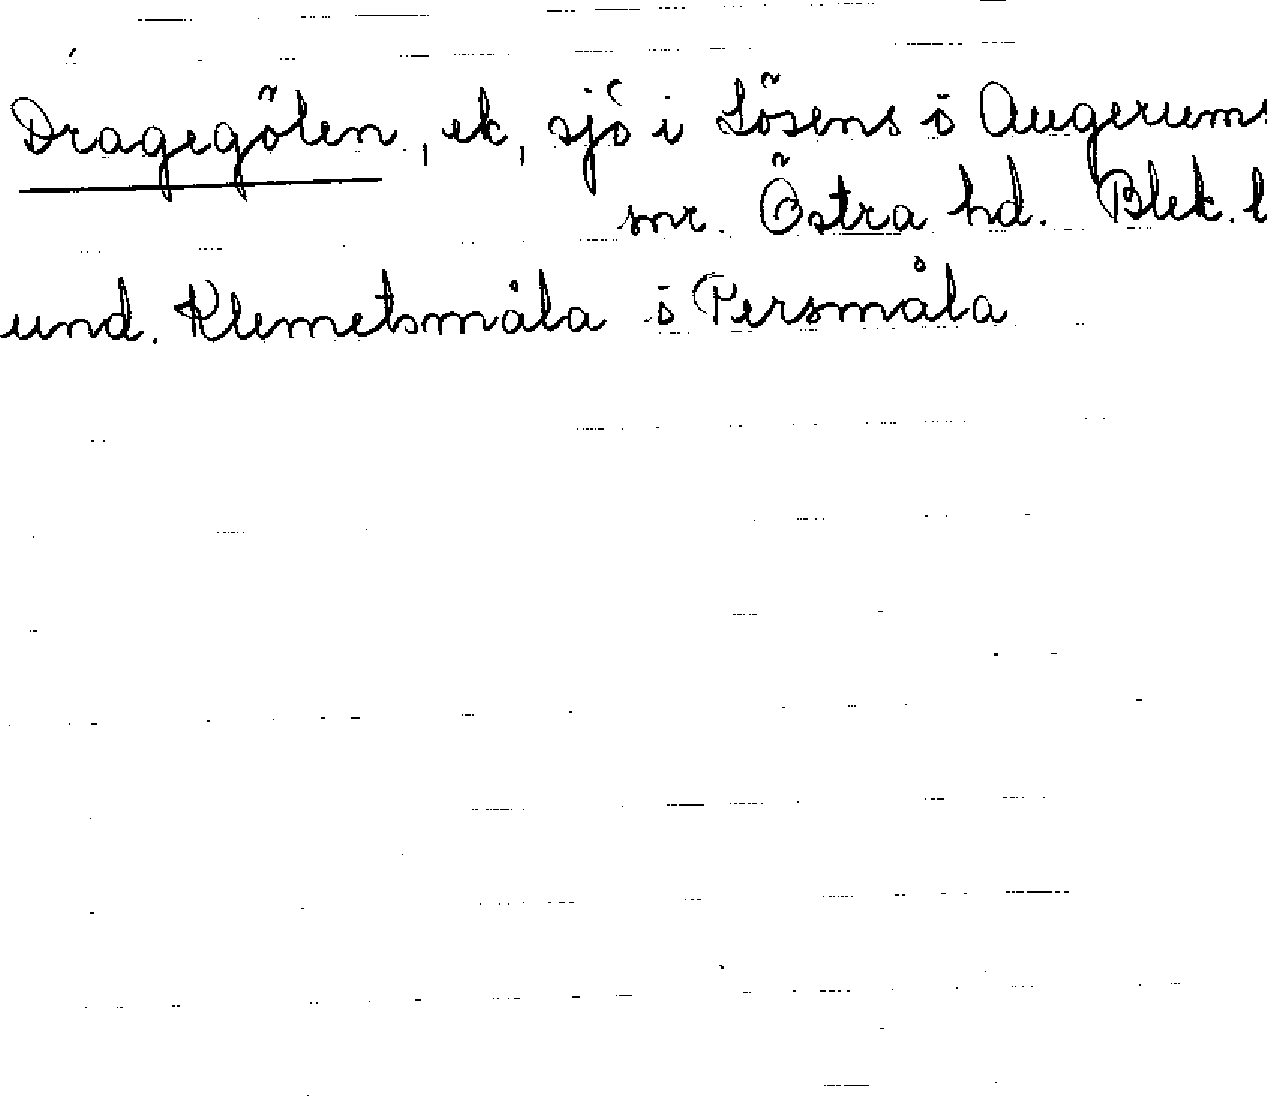 Dragegölen, ek, sjö i Lösens o Augerums
snr. Östra hd. Blek. l
und. Klemetsmåla o Persmåla